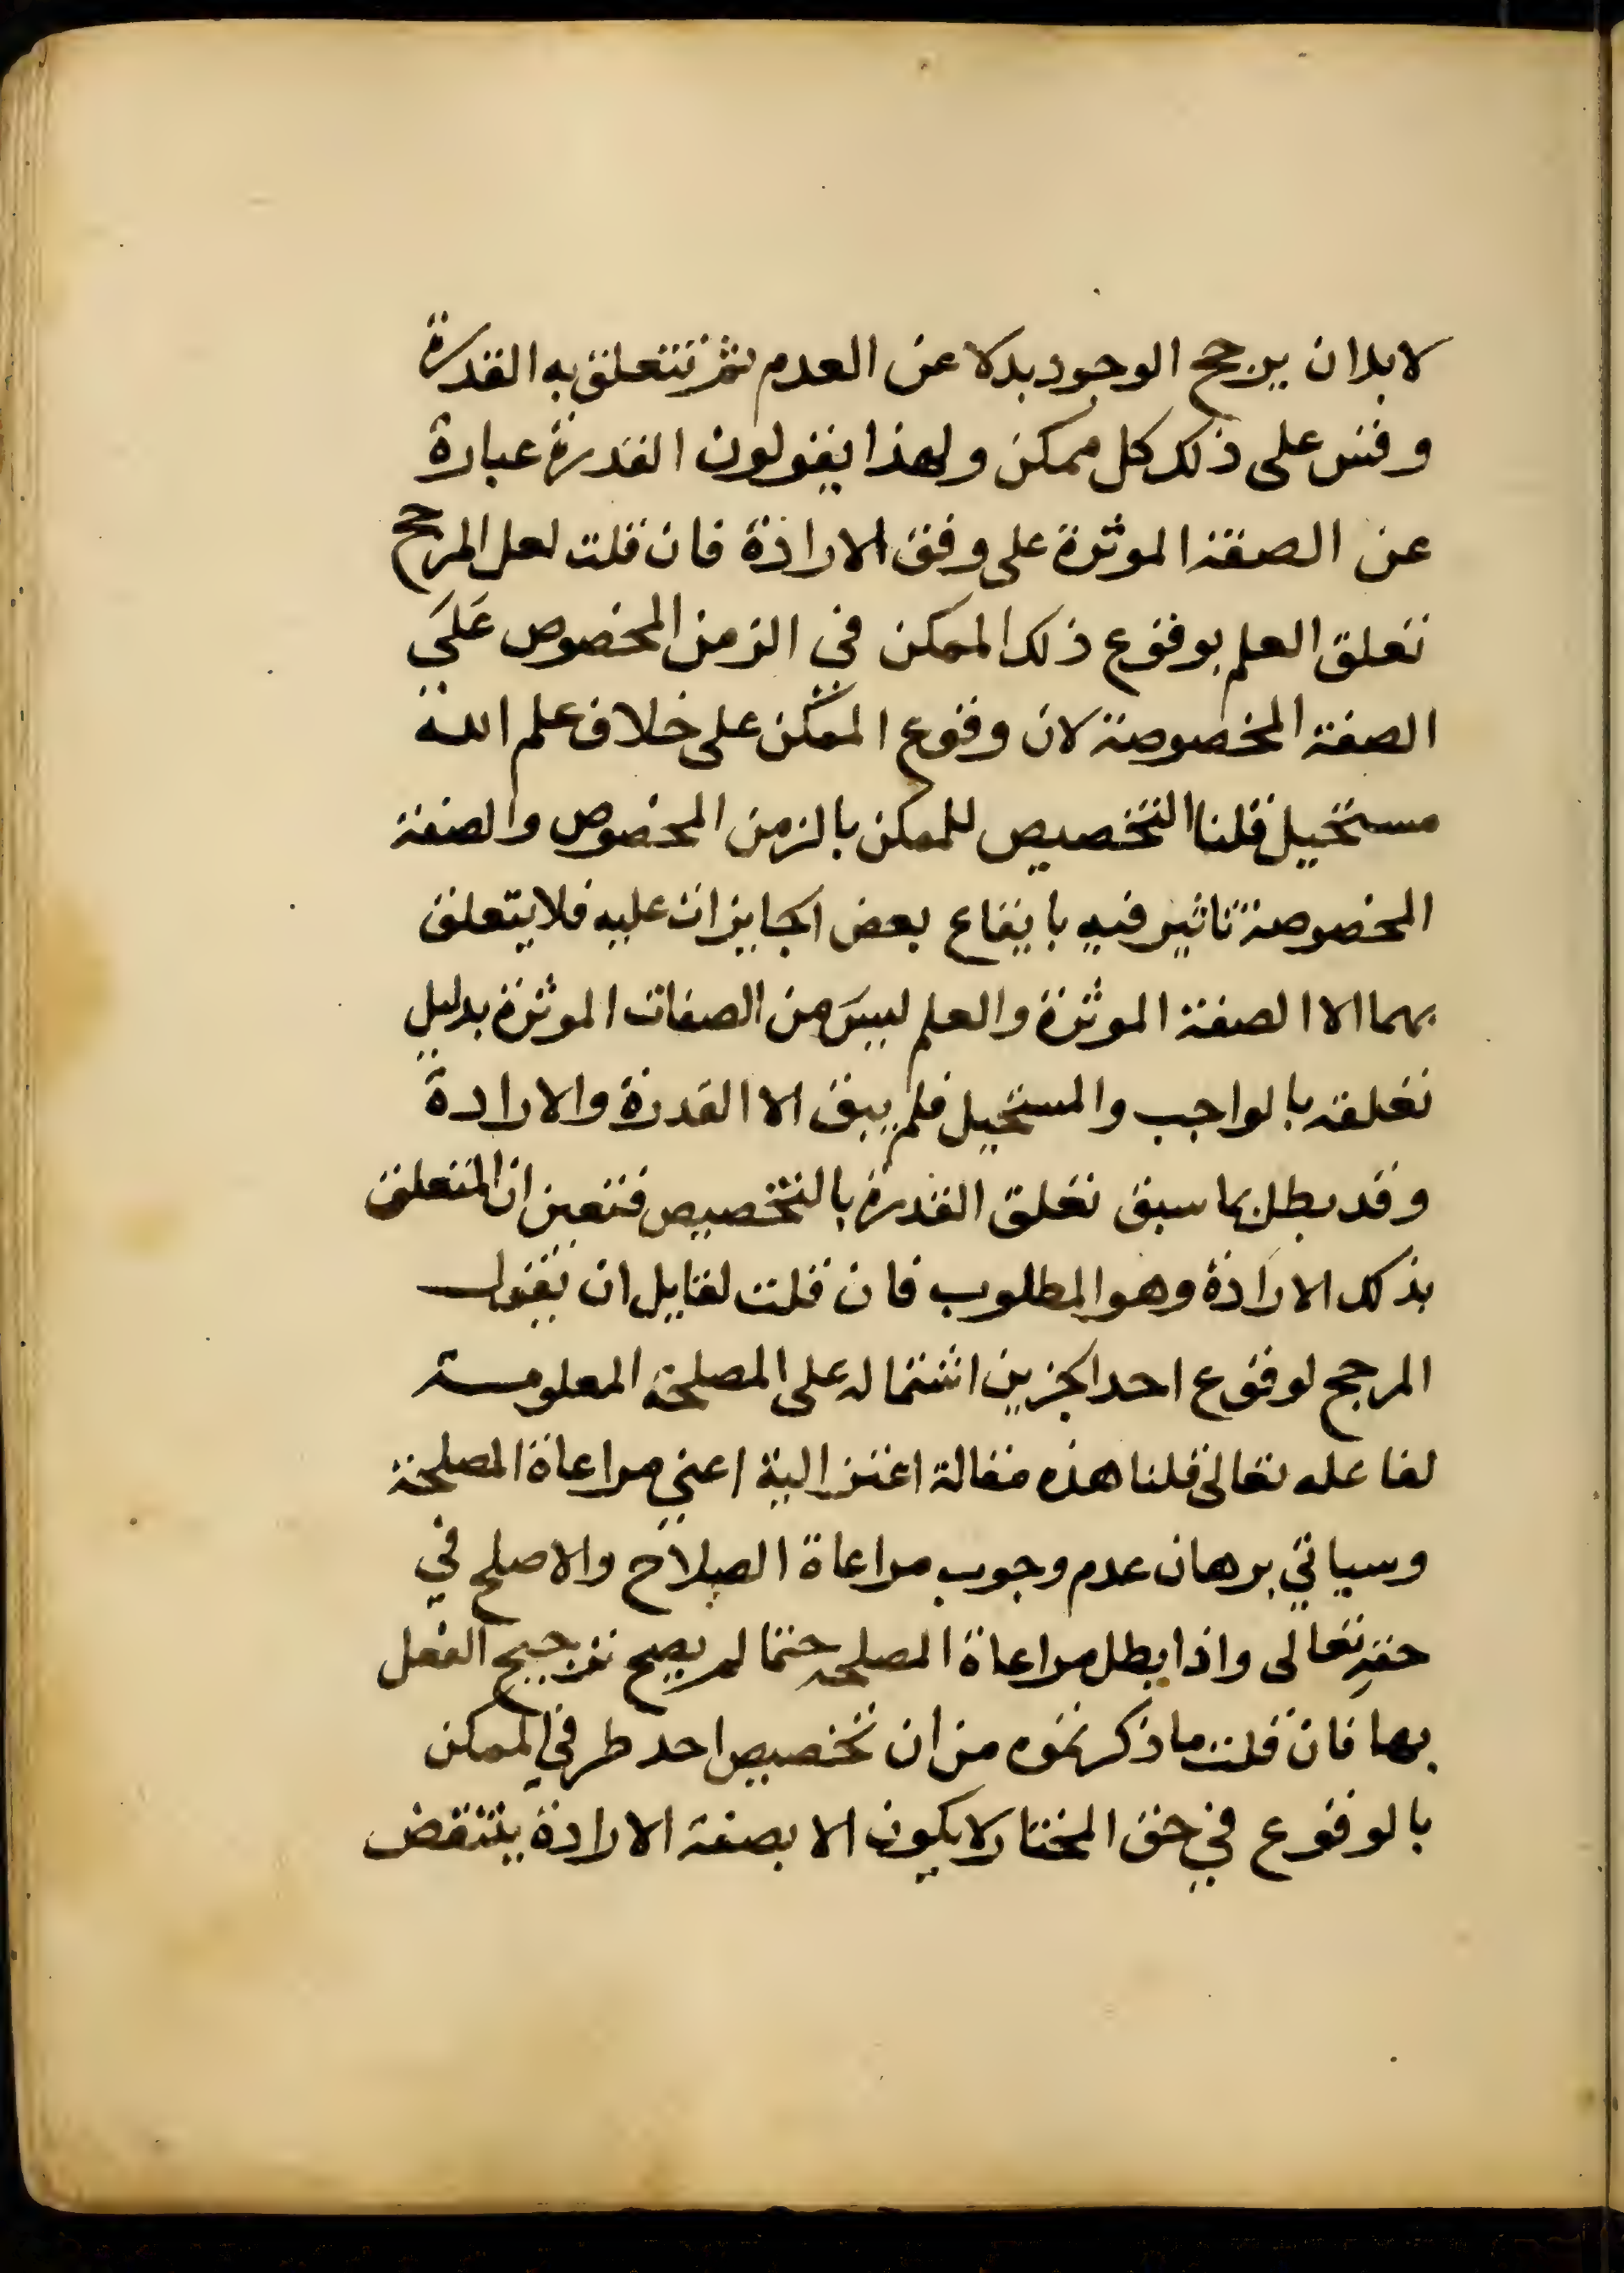 لا بد ان يرجح الوجود بدلا عن العدم ثم تتعلق به القدرة
وقس على ذلك كل ممكن ولهذا يقولون القدرة عبارة
عن الصفة الموثرة على وفق الارادة فان قلت لعل المرجح
تعلق العلم بوقوع ذلك الممكن في الزمن المخصوص عَلَي
الصفة المخصوصة لان وقوع الممكن على خلاف علم الله
مستحيل قلنا التخصيص للممكن بالزمن المخصوص والصفة
المخصوصة تاثير فيه بايقاع بعض الجايزات عليه فلا يتعلق
بهما الا الصفة الموثرة والعلم ليسَ من الصفات الموثرة بدليل
تعلقه بالواجب والمستحيل فلم يبق الا القدرة والارادة
وقد بطل بما سبق تعلق القدرة بالتخصيص فتعين ان المتعلق
بذلك الارَادة وهو المطلوب فان قلت لقايل ان يقول
المرجح لوقوع احد الجزين اشتماله على المصلحة المعلومة
لفاعله تعالى قلنا هذه مقالة اعتزالية اعني مراعاة المصلحة
وسياتي برهان عدم وجوب مراعاة الصلاح والاصلح في
حقهِ تعالى واذا بطل مراعاة المصلحة حتما لم يصح ترجيح الفعل
بها فان قلت ما ذكرتموه من ان تخصيص احد طرفي الممكن
بالوقوع في حق المختار لا يكون الا بصفة الارادة ينتقض